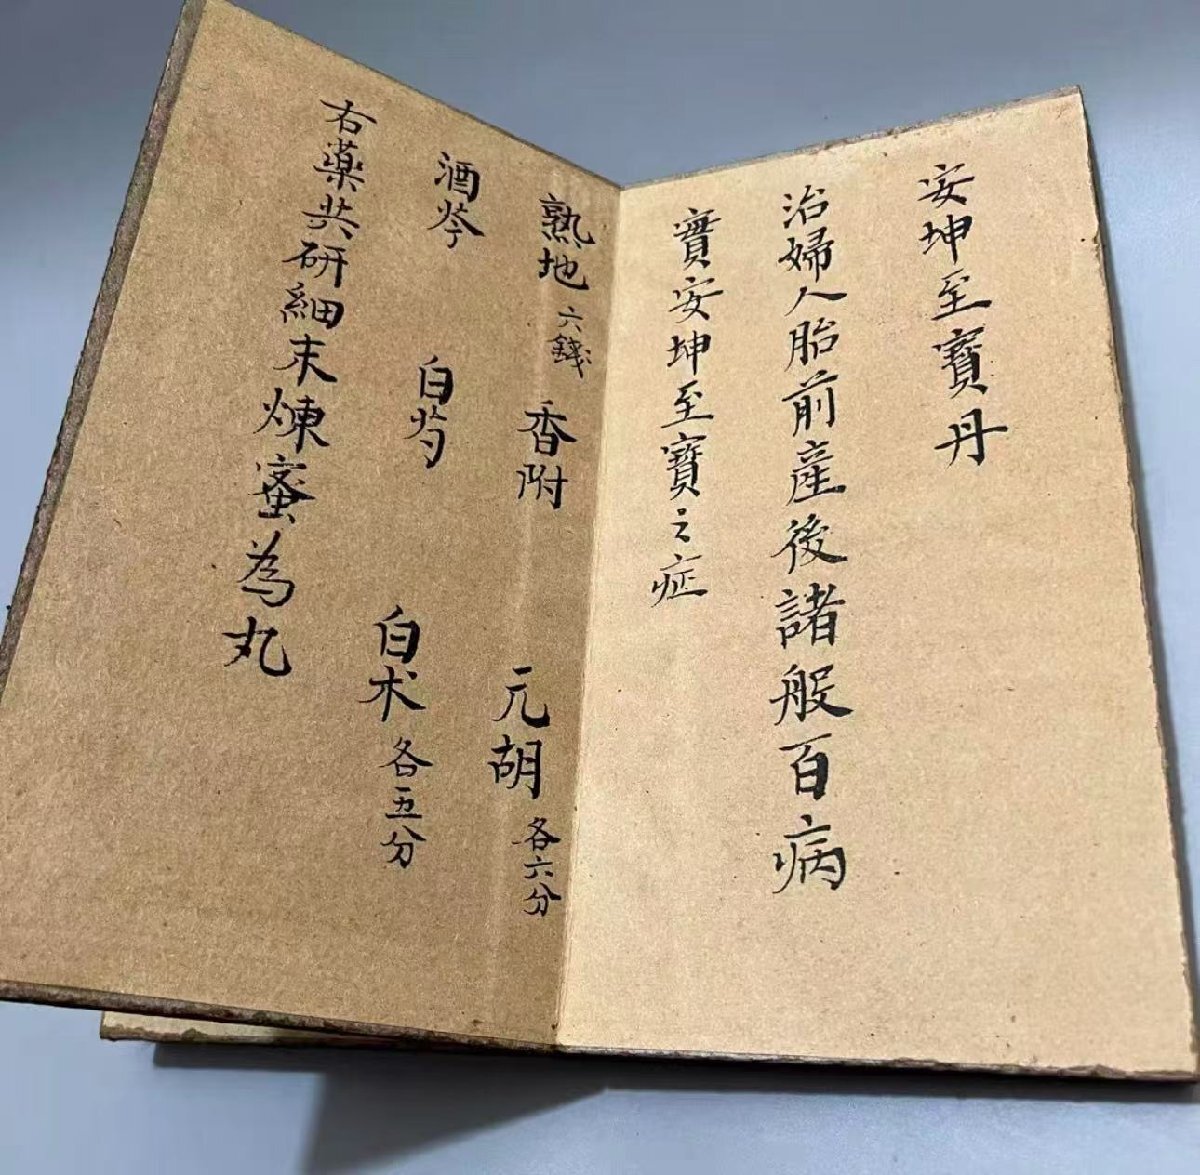 安坤至寶丹
治婦人胎前產後諸般百病
實安坤至寶之症
熟地 六錢 香附 元胡 各六分
酒芩 白芍 白术 各五分
右藥共研細末煉蜜為丸